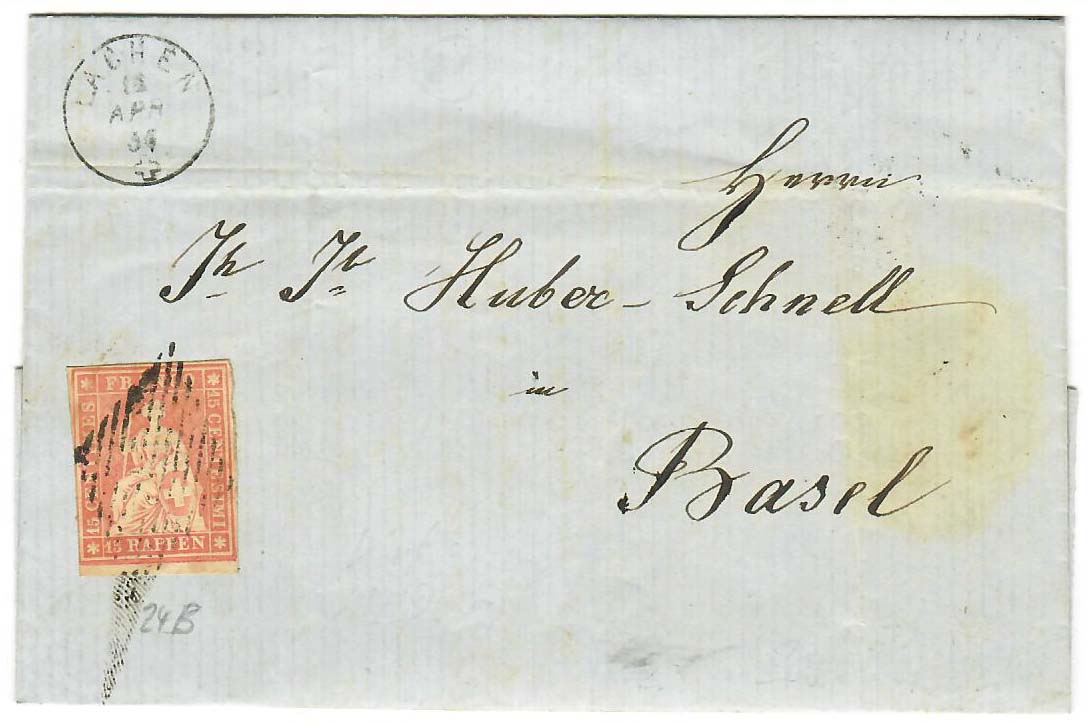 LACHEN
18
APR
56
Herrn
Jh Jb Huber-Schnell
in
Basel
FRANCO
15 CENTIMES
15 CENTESIMI
15 RAPPEN
24B